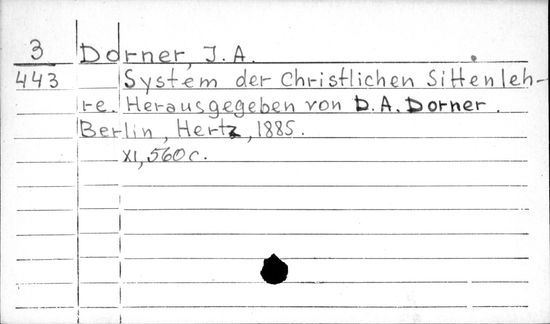 3 Dorner, J. A.
443 System der Christlichen Sittenleh-
re. Herausgegeben von D. A. Dorner.
Berlin, Hertz, 1885.
XI, 560 c.